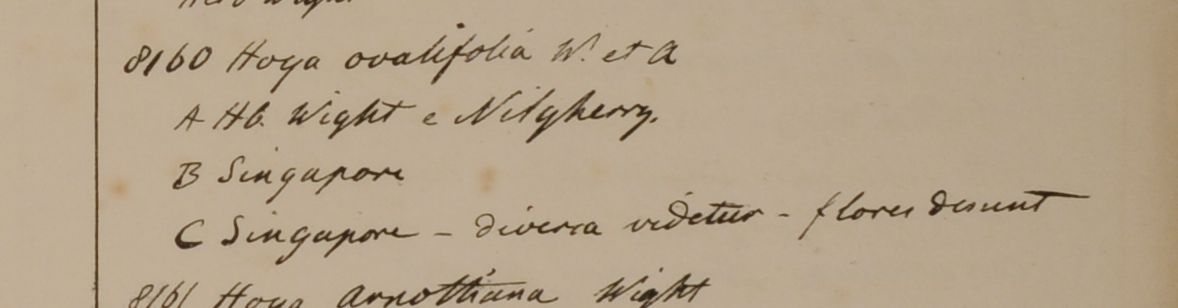 Herb Wight
8160 Hoya ovalifolia W. et A
A Hb. Wight e Nilgherry.
B Singapore
C Singapore - diversa videtur - flores desunt
8161 Hoya Arnottiana Wight